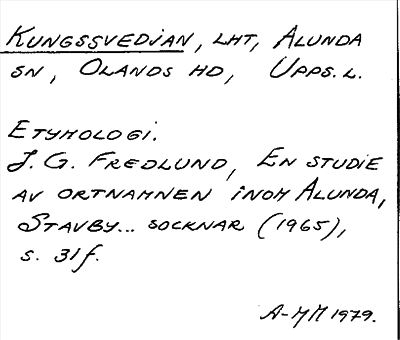 KUNGSSVEDJAN, LHT, ALUNDA
SN, OLANDS HD, UPPS. L.
ETYMOLOGI.
J. G. FREDLUND, EN STUDIE
AV ORTNAMNEN INOM ALUNDA,
STAVBY... SOCKNAR (1965),
S. 31f.
A-MM 1979.